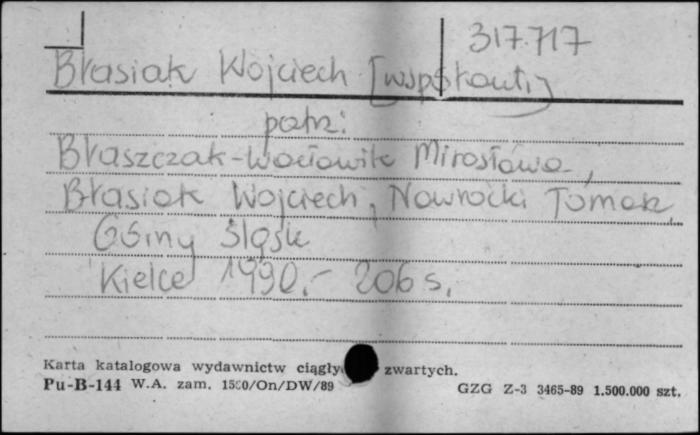 317.717
Błasiak Wojciech [współaut.]
patrz:
Błaszczak-Wacławik Mirosława,
Błasiak Wojciech, Nawrocki Tomasz
Górny Śląsk
Kielce 1990.- 206 s.
Karta katalogowa wydawnictw ciągły zwartych.
Pu-B-144 W.A. zam. 1500/On/DW/89
GZG Z-3 3465-89 1.500.000 szt.